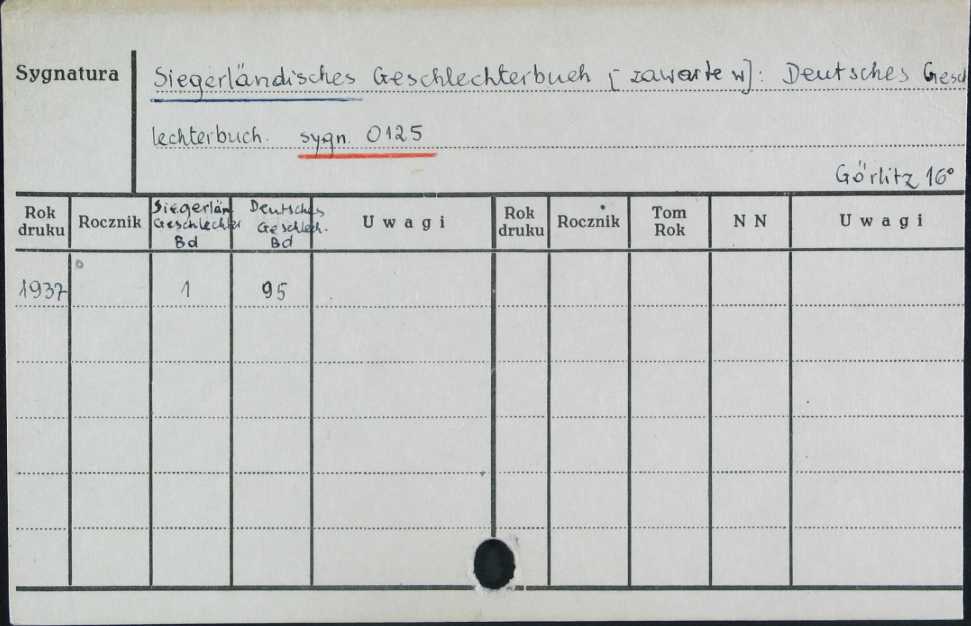 Sygnatura
Siegerländisches Geschlechterbuch [zawarte w]: Deutsches Gesch
lechterbuch. sygn. 0125
Görlitz 16°
Rok druku
Rocznik
Siegerlän Geschlechter Bd
Deutsches Geschlech. Bd
Uwagi
Rok druku
Rocznik
Tom Rok
NN
Uwagi
1937 1 95